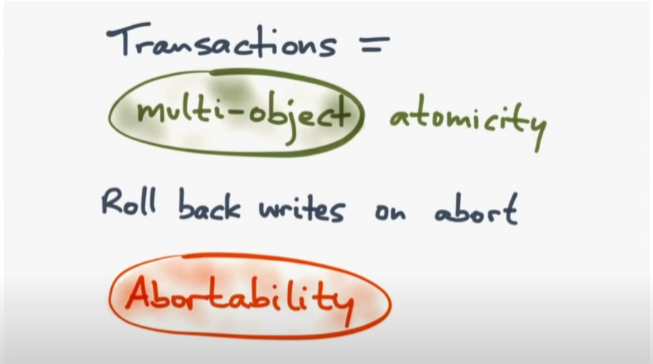 Transactions =
multi-object atomicity
Roll back writes on abort
Abortability